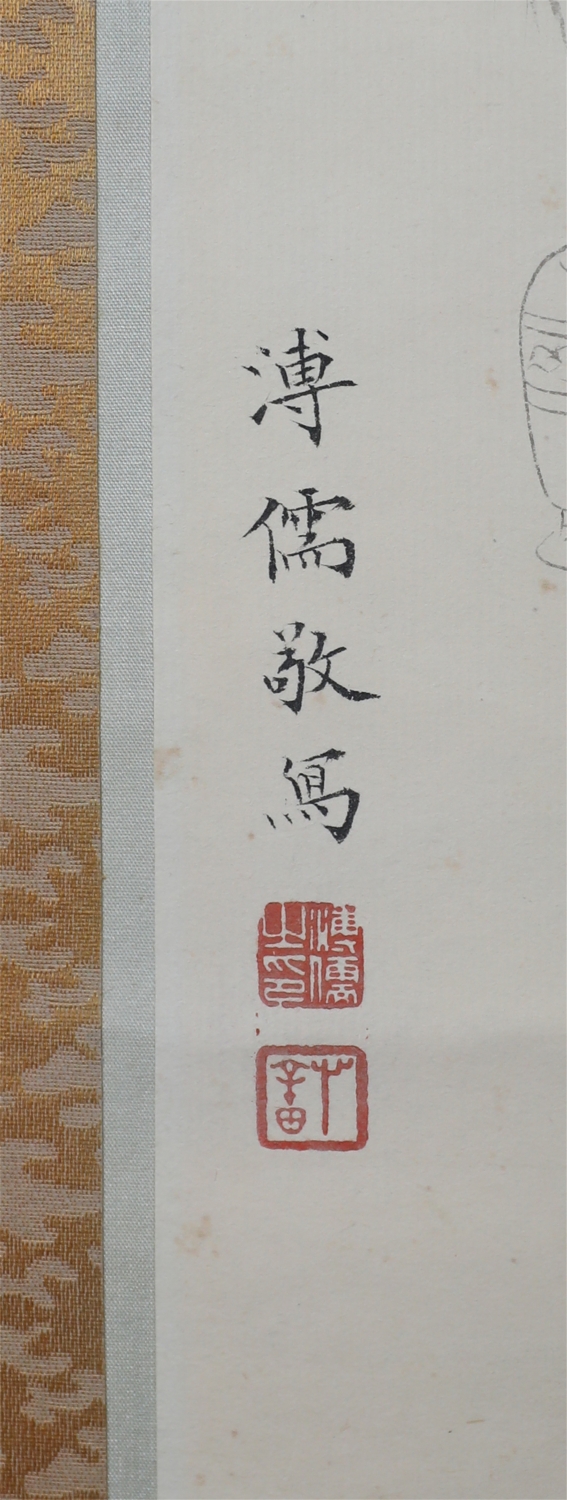 溥儒敬寫
溥儒之印
心畬